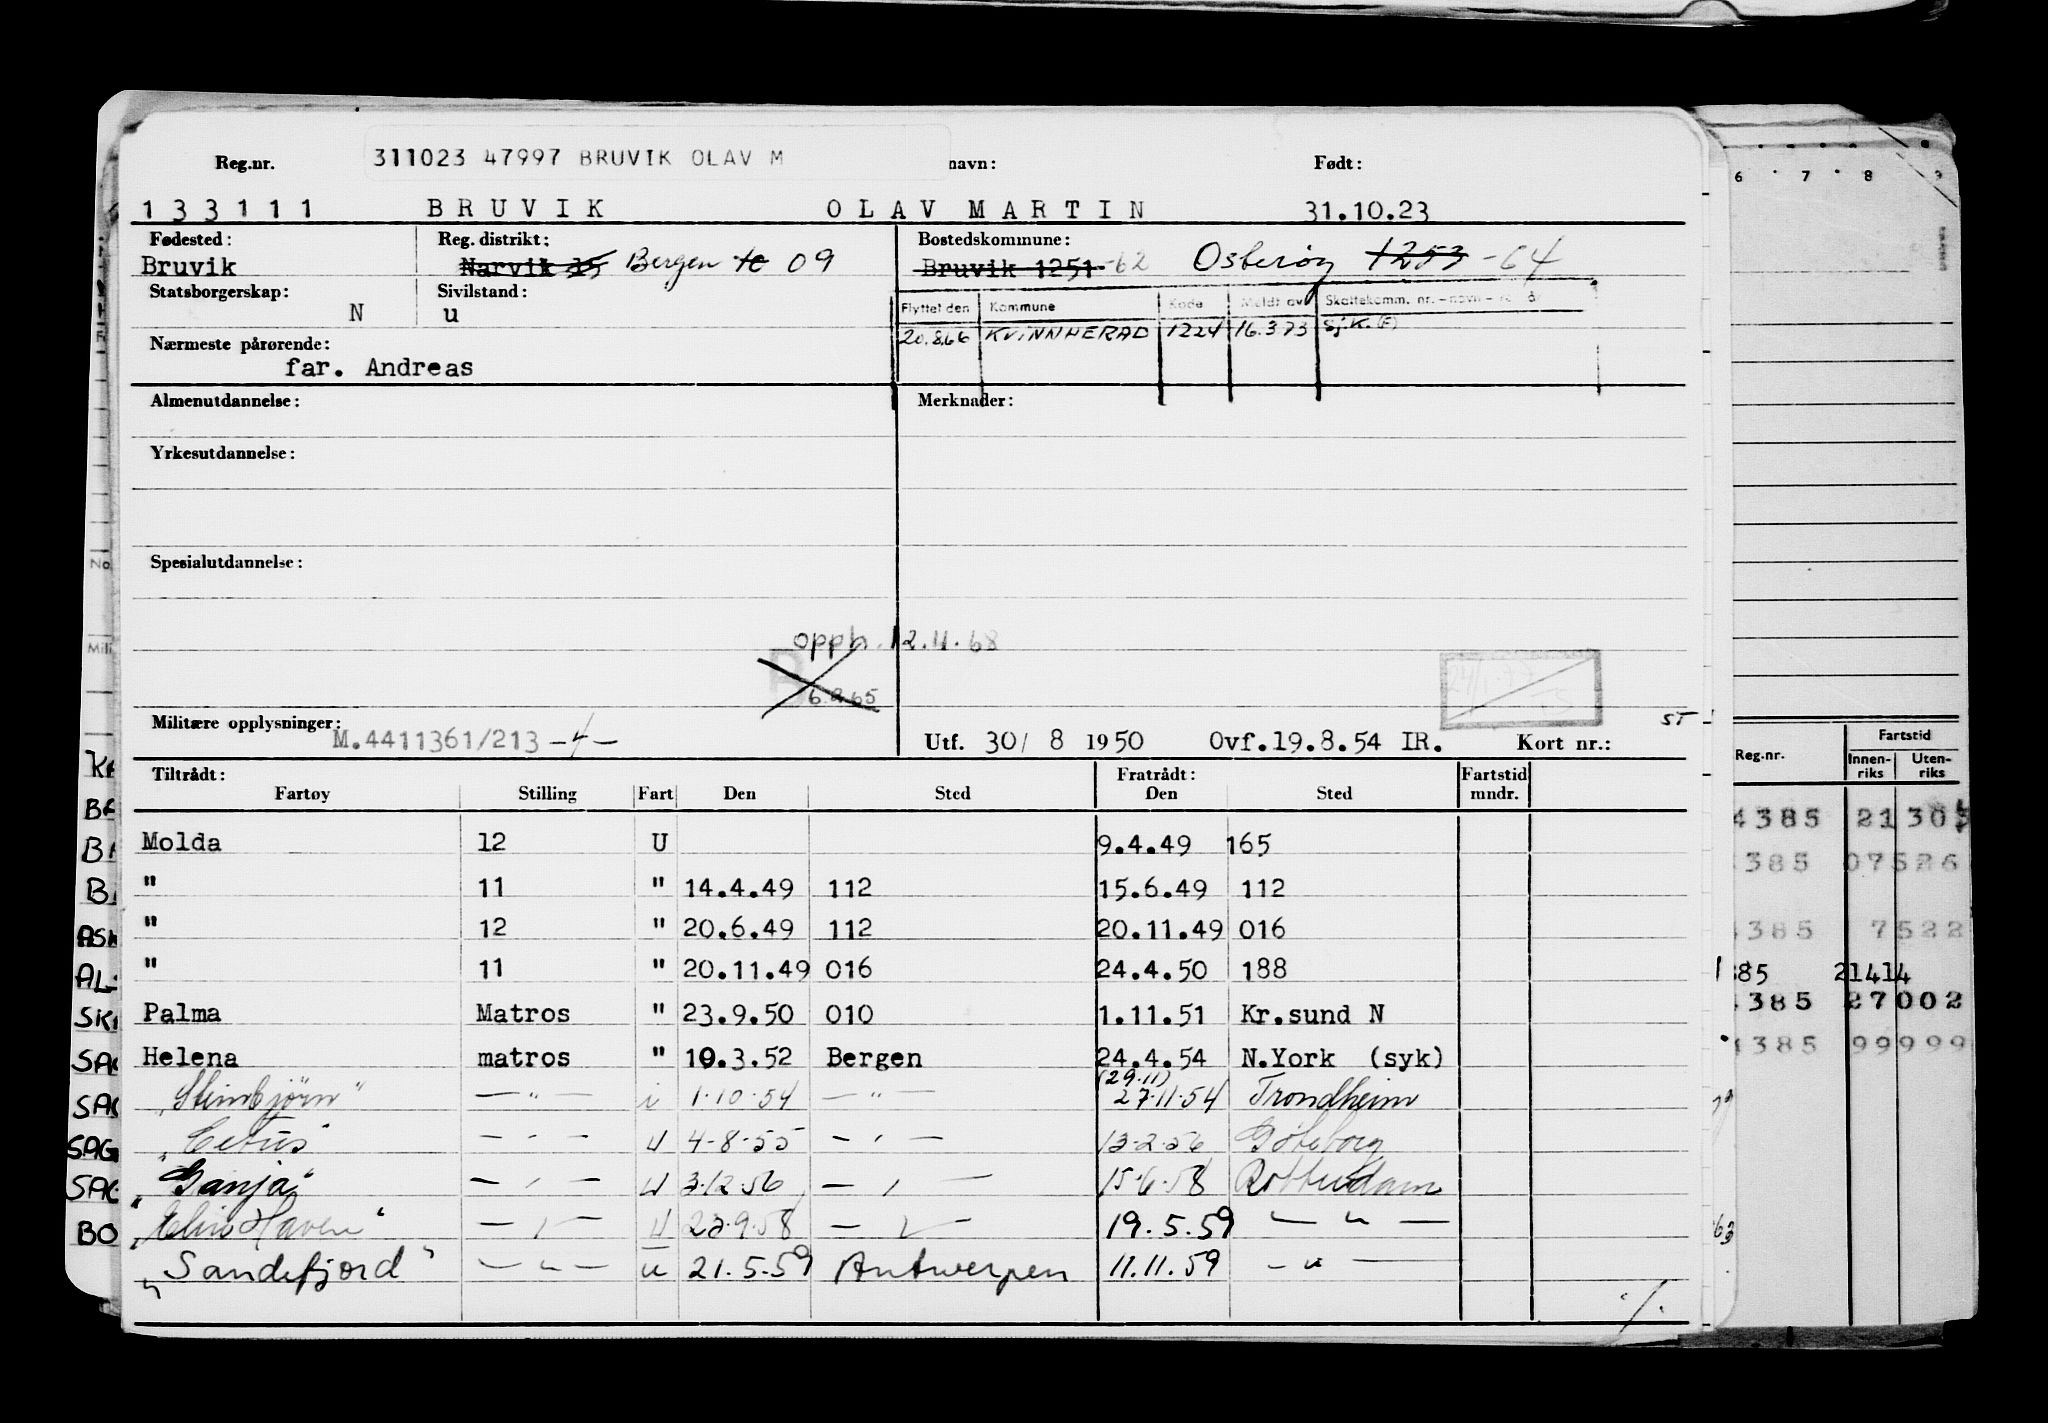 Reg.nr. 311023 47997 BRUVIK OLAV M navn: Født:
133111 BRUVIK OLAV MARTIN 31.10.23
Fødested: Reg. distrikt: Bostedskommune:
Bruvik Narvik 35 Bergen 09 Bruvik 1251 -62 Osterøy 1253 -64
Statsborgerskap: N Sivilstand: u
Flyttet den Kommune Kode Meldt av Skattekomm. nr. - navn -
20.8.66 KVINNHERAD 1224 16.3.73 Sj.K.(F)
Nærmeste pårørende:
far. Andreas
Almenutdannelse: Merknader:
Yrkesutdannelse:
Spesialutdannelse:
opph. 12.11.68
B 6.8.65
ST
Militære opplysninger: M.4411361/213 -4- Utf. 30/ 8 1950 Ovf.19.8.54 IR. Kort nr.:
Tiltrådt: Fratrådt: Fartstid
Fartøy Stilling Fart Den Sted Den Sted mndr.
Molda 12 U 9.4.49 165
" 11 " 14.4.49 112 15.6.49 112
" 12 " 20.6.49 112 20.11.49 016
" 11 " 20.11.49 016 24.4.50 188
Palma Matros " 23.9.50 010 1.11.51 Kr.sund N
Helena matros " 10.3.52 Bergen 24.4.54 N.York (syk)
(29.11)
"Steinbjörn" — " — i 1.10.54 — " — 27.11.54 Trondheim
"Cetus" — " — U 4-8-55 — " — 13-2-56 Göteborg
"Ganja" — " — U 3.12.56 — " — 15.6.58 Rotterdam
Haven" — " — U 9.58 — " — 19.5.59 — " —
"Sandefjord" — " — u 21.5.59 Antwerpen 11.11.59 — " —
./.
6 7 8 9
No
Mili
Reg.nr. Fartstid
Innen-riks Uten-riks
4385 21303
385 07526
385 7522
385 21414
4385 27002
4385 99999
63
BA
BA
ASK
AL
SK
SAG
SAG
SAG
SAG
BO